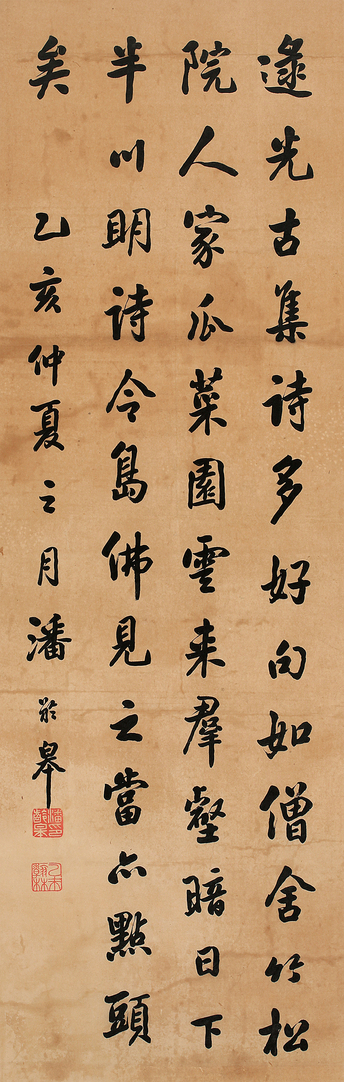 逯光古集詩多好句如僧舍竹松
院人家瓜菜園雲来羣壑暗日下
半川明詩令島佛見之當亦點頭
矣
乙亥仲夏之月潘齡皋
潘印齡皋
乙未翰林